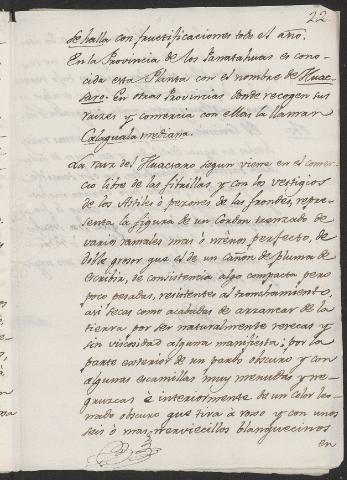 22
se halla con fructificaciones todo el año.
En la Provincia de los Panatahuas es cono-
cida esta Planta con el nombre de Huac-
saro. En otras Provincias donde recogen sus
raizes y comercia con ellas la llaman
Calaguala mediana.
La raiz del Huacsaro segun viene en el comer-
cio libre de las fibrillas, y con los vestigios
de los Astiles ó pezones de las frondes, repre-
senta la figura de un Cordon trenzado de
varios ramales mas ó méno perfecto, de
doble grosor que el de un Cañon de pluma de
escribir, de consistencia algo compacta pero
poco pesadas, resistente al tronchamiento,
asi secas como acabadas de arrancar de la
tierra por ser naturalmente resecas y
sin viscosidad alguna manifiesta: por la
parte exterior de un pardo obscuro y con
algunas escamillas muy menudas y ne-
gruzcas é interiormente de un color leo-
nado obscuro que tira á roxo y con unos
seis ó mas nerviecillos blanquecinos
en